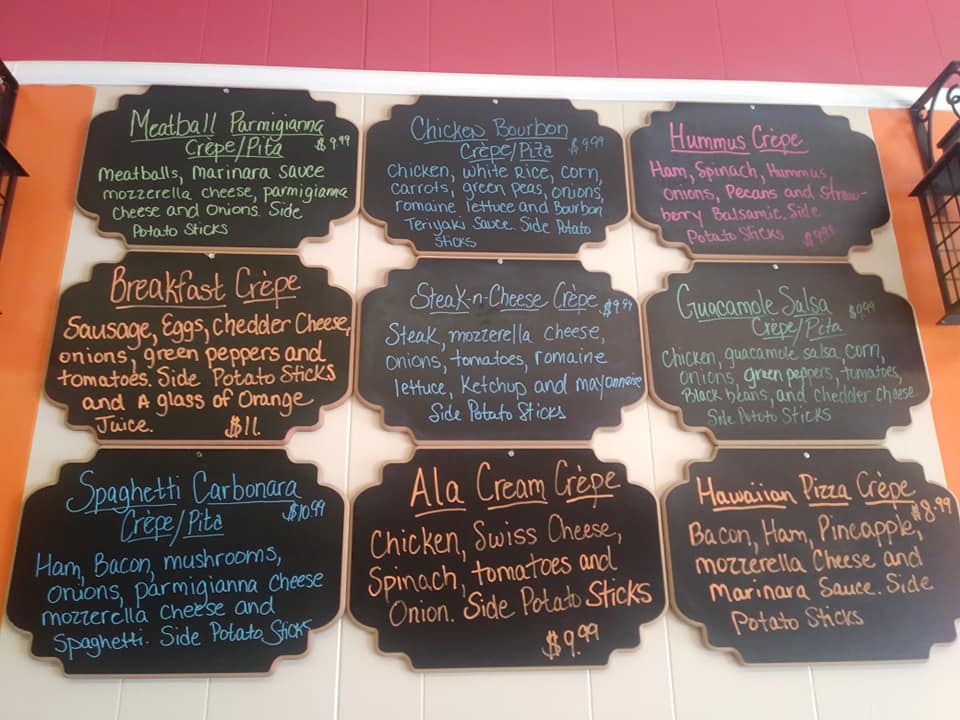 Meatball Parmigianna
Crèpe/Pita $9.99
Meatballs, marinara sauce
mozzerella cheese, parmigianna
cheese and Onions. Side
Potato Sticks
Chicken Bourbon
Crèpe/Pita $9.99
Chicken, white Rice, corn,
carrots, green peas, onions
romaine lettuce and Bourbon
Teriyaki Sauce. Side Potato
Sticks
Hummus Crèpe
Ham, Spinach, Hummus
onions, Pecans and Straw-
berry Balsamic. Side
Potato Sticks $9.99
Breakfast Crèpe
Sausage, Eggs, chedder Cheese,
onions, green peppers and
tomatoes. Side Potato Sticks
and A glass of Orange
Juice. $11.
Steak-n-Cheese Crèpe $9.99
Steak, mozzerella cheese,
onions, tomatoes, romaine
lettuce, Ketchup and mayonnaise
Side Potato Sticks
Guacamole Salsa
Crepe/Pita $9.99
Chicken, guacamole salsa, corn,
onions, green peppers, tomatoes,
Black beans, and chedder cheese
Side Potato Sticks
Spaghetti Carbonara
Crèpe/Pita $10.99
Ham, Bacon, mushrooms,
onions, parmigianna cheese
mozzerella cheese and
Spaghetti. Side Potato Sticks
Ala Cream Crèpe
Chicken, Swiss Cheese,
Spinach, tomatoes and
Onion. Side Potato Sticks
$9.99
Hawaiian Pizza Crèpe
$8.99
Bacon, Ham, Pineapple,
mozzerella Cheese and
marinara Sauce. Side
Potato Sticks